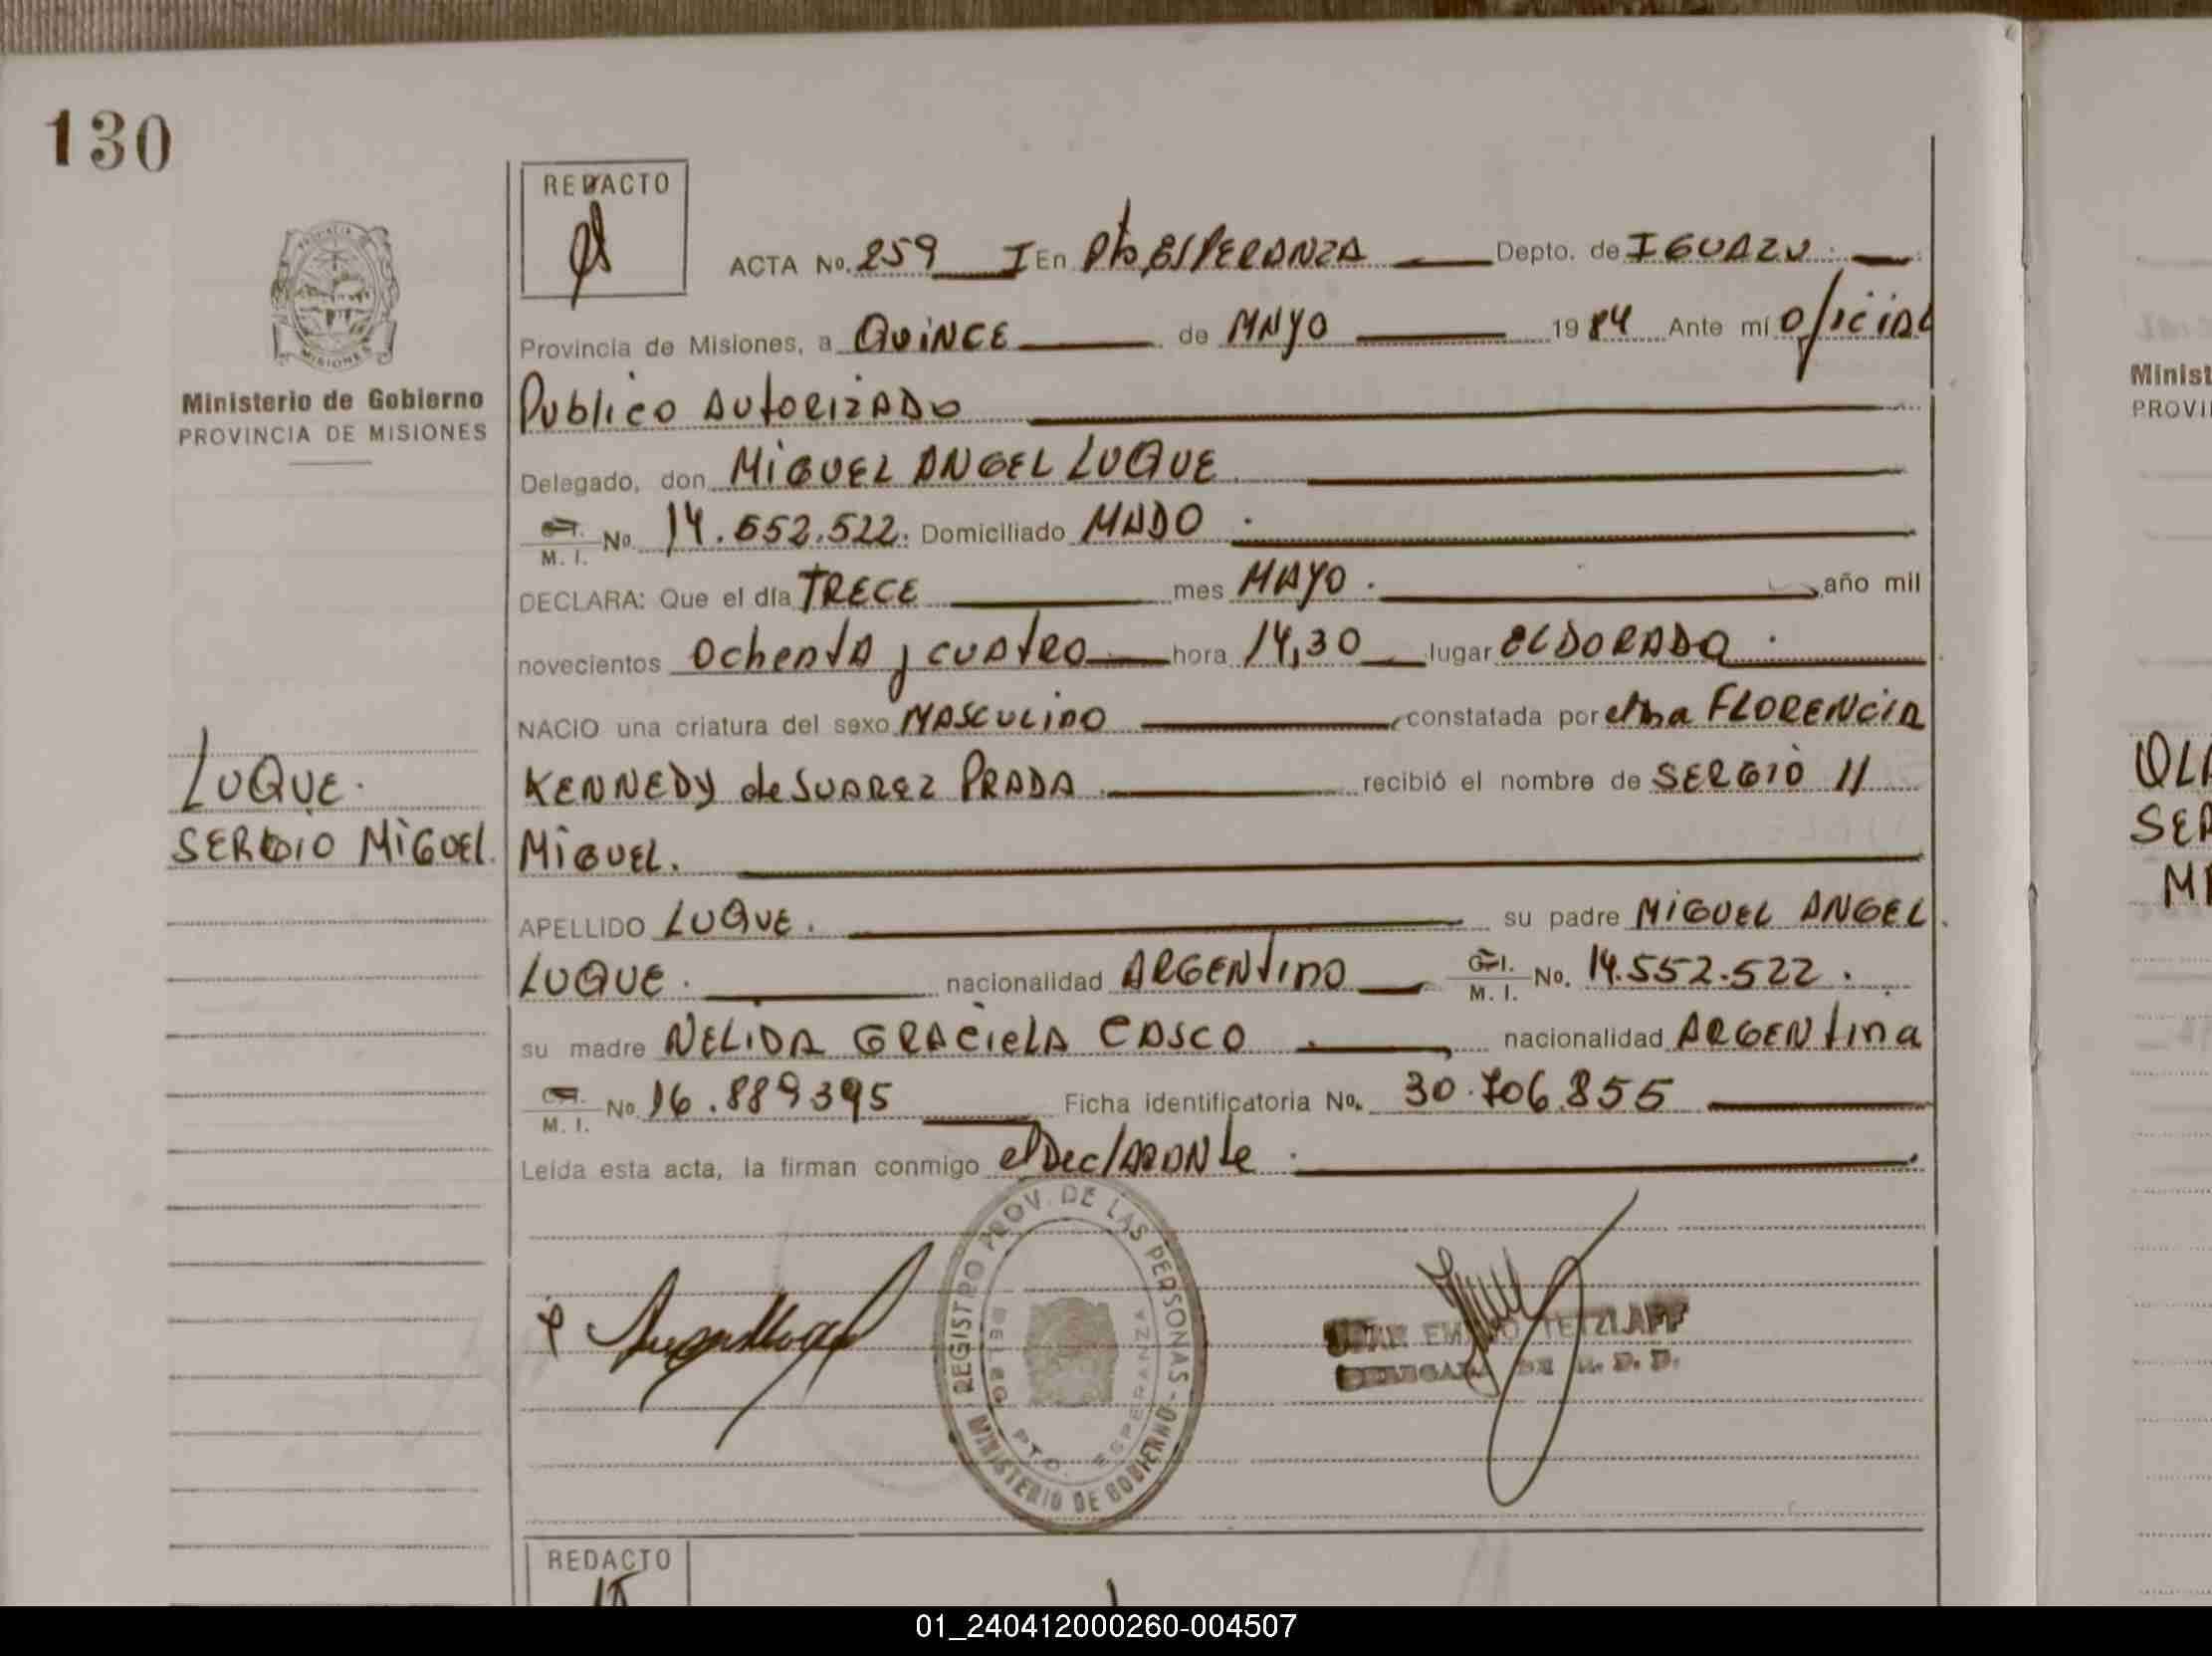 130
REDACTO
ACTA No. 259 I En Pto ESPERANZA Depto. de IGUAZU
Provincia de Misiones, a QUINCE de MAYO 1984 Ante mí Oficial
Publico AUTORIZADO
Delegado, don MIGUEL ANGEL LUQUE
C. I.
M. I. No. 14.552.522. Domiciliado MADO
DECLARA: Que el día TRECE mes MAYO. año mil
novecientos Ochenta y cuatro hora 14,30 lugar ELDORADO.
NACIO una criatura del sexo MASCULINO constatada por FLORENCIA
KENNEDY de SUAREZ PRADA recibió el nombre de SERGIO //
MIGUEL.
APELLIDO LUQUE. su padre MIGUEL ANGEL
LUQUE. nacionalidad ARGENTINO C. I.
M. I. No. 14.552.522.
su madre NELIDA GRACIELA CASCO nacionalidad ARGENTINA
C. I.
M. I. No 16.889395 Ficha identificatoria No. 30.706.855
Leída esta acta, la firman conmigo el DeclARANte.
PROVINCIA
MISIONES
Ministerio de Gobierno
PROVINCIA DE MISIONES
LUQUE.
SERGIO MIGUEL.
REGISTRO PROV. DE LAS PERSONAS - MINISTERIO DE GOBIERNO
DELEG. PTO. ESPERANZA
TETZLAFF
REDACTO
Minist
PROVI
OLA
SER
MA
01_240412000260-004507